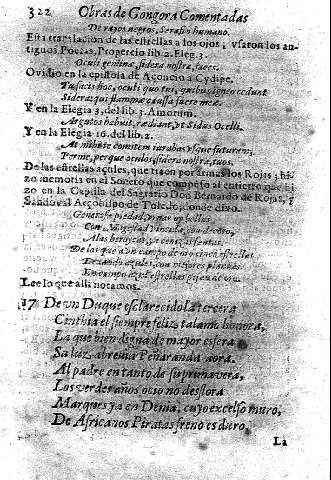 322 Obras de Gongora Comentadas
De rayos negros, Serafin humano.
Esta translacion de las estrellas a los ojos, vsaron los an-
tiguos Poetas, Propercio lib. 2. Eleg. 3.
Oculi geminæ, sidera nostra, faces.
Ouidio en la epistola de Aconcio a Cydipe.
Tu facis hoc, oculi quo tui, quibus ignea cedunt
Sidera, qui flammæ causa fuere meæ.
Y en la Elegia 3. del lib. 3. Amorum.
Argutos habuit, radiant, vt Sidus Ocelli.
Y en la Elegia 16. del lib. 2.
At mihi te comitem iurabas vsque futuram,
Perme, per que oculos sidera nostra, tuos.
De las estrellas açules, que tison por armas los Rojas; hi-
zo memoria en el Soneto que compuso al entierro que hi
zo en la Capilla del Sagrario Don Bernardo de Rojas, y
Sandoual Arçobispo de Toledo, donde dixo.
Generosa piedad, vrnas
Con Magestad vincula, con decoro,
A las heroycas, ya cenizas santas.
De las que a vn campo de oro cinco estrellas
Dexando açules, con mejores plantas
En campo açul estrellas pisan de oro.
Lee lo que alli notamos.
17 De vn Duque esclarecido la tercera
Cinthia el siempre feliz talamo honora,
La que bien digna de mayor esfera
Su luz abreuia Peñaranda aora.
Al padre en tanto de su primauera,
Los verdes años ocio no desflora
Marques ya en Denia, cuyo excelso muro,
De Africanos Piratas freno es duro.
La